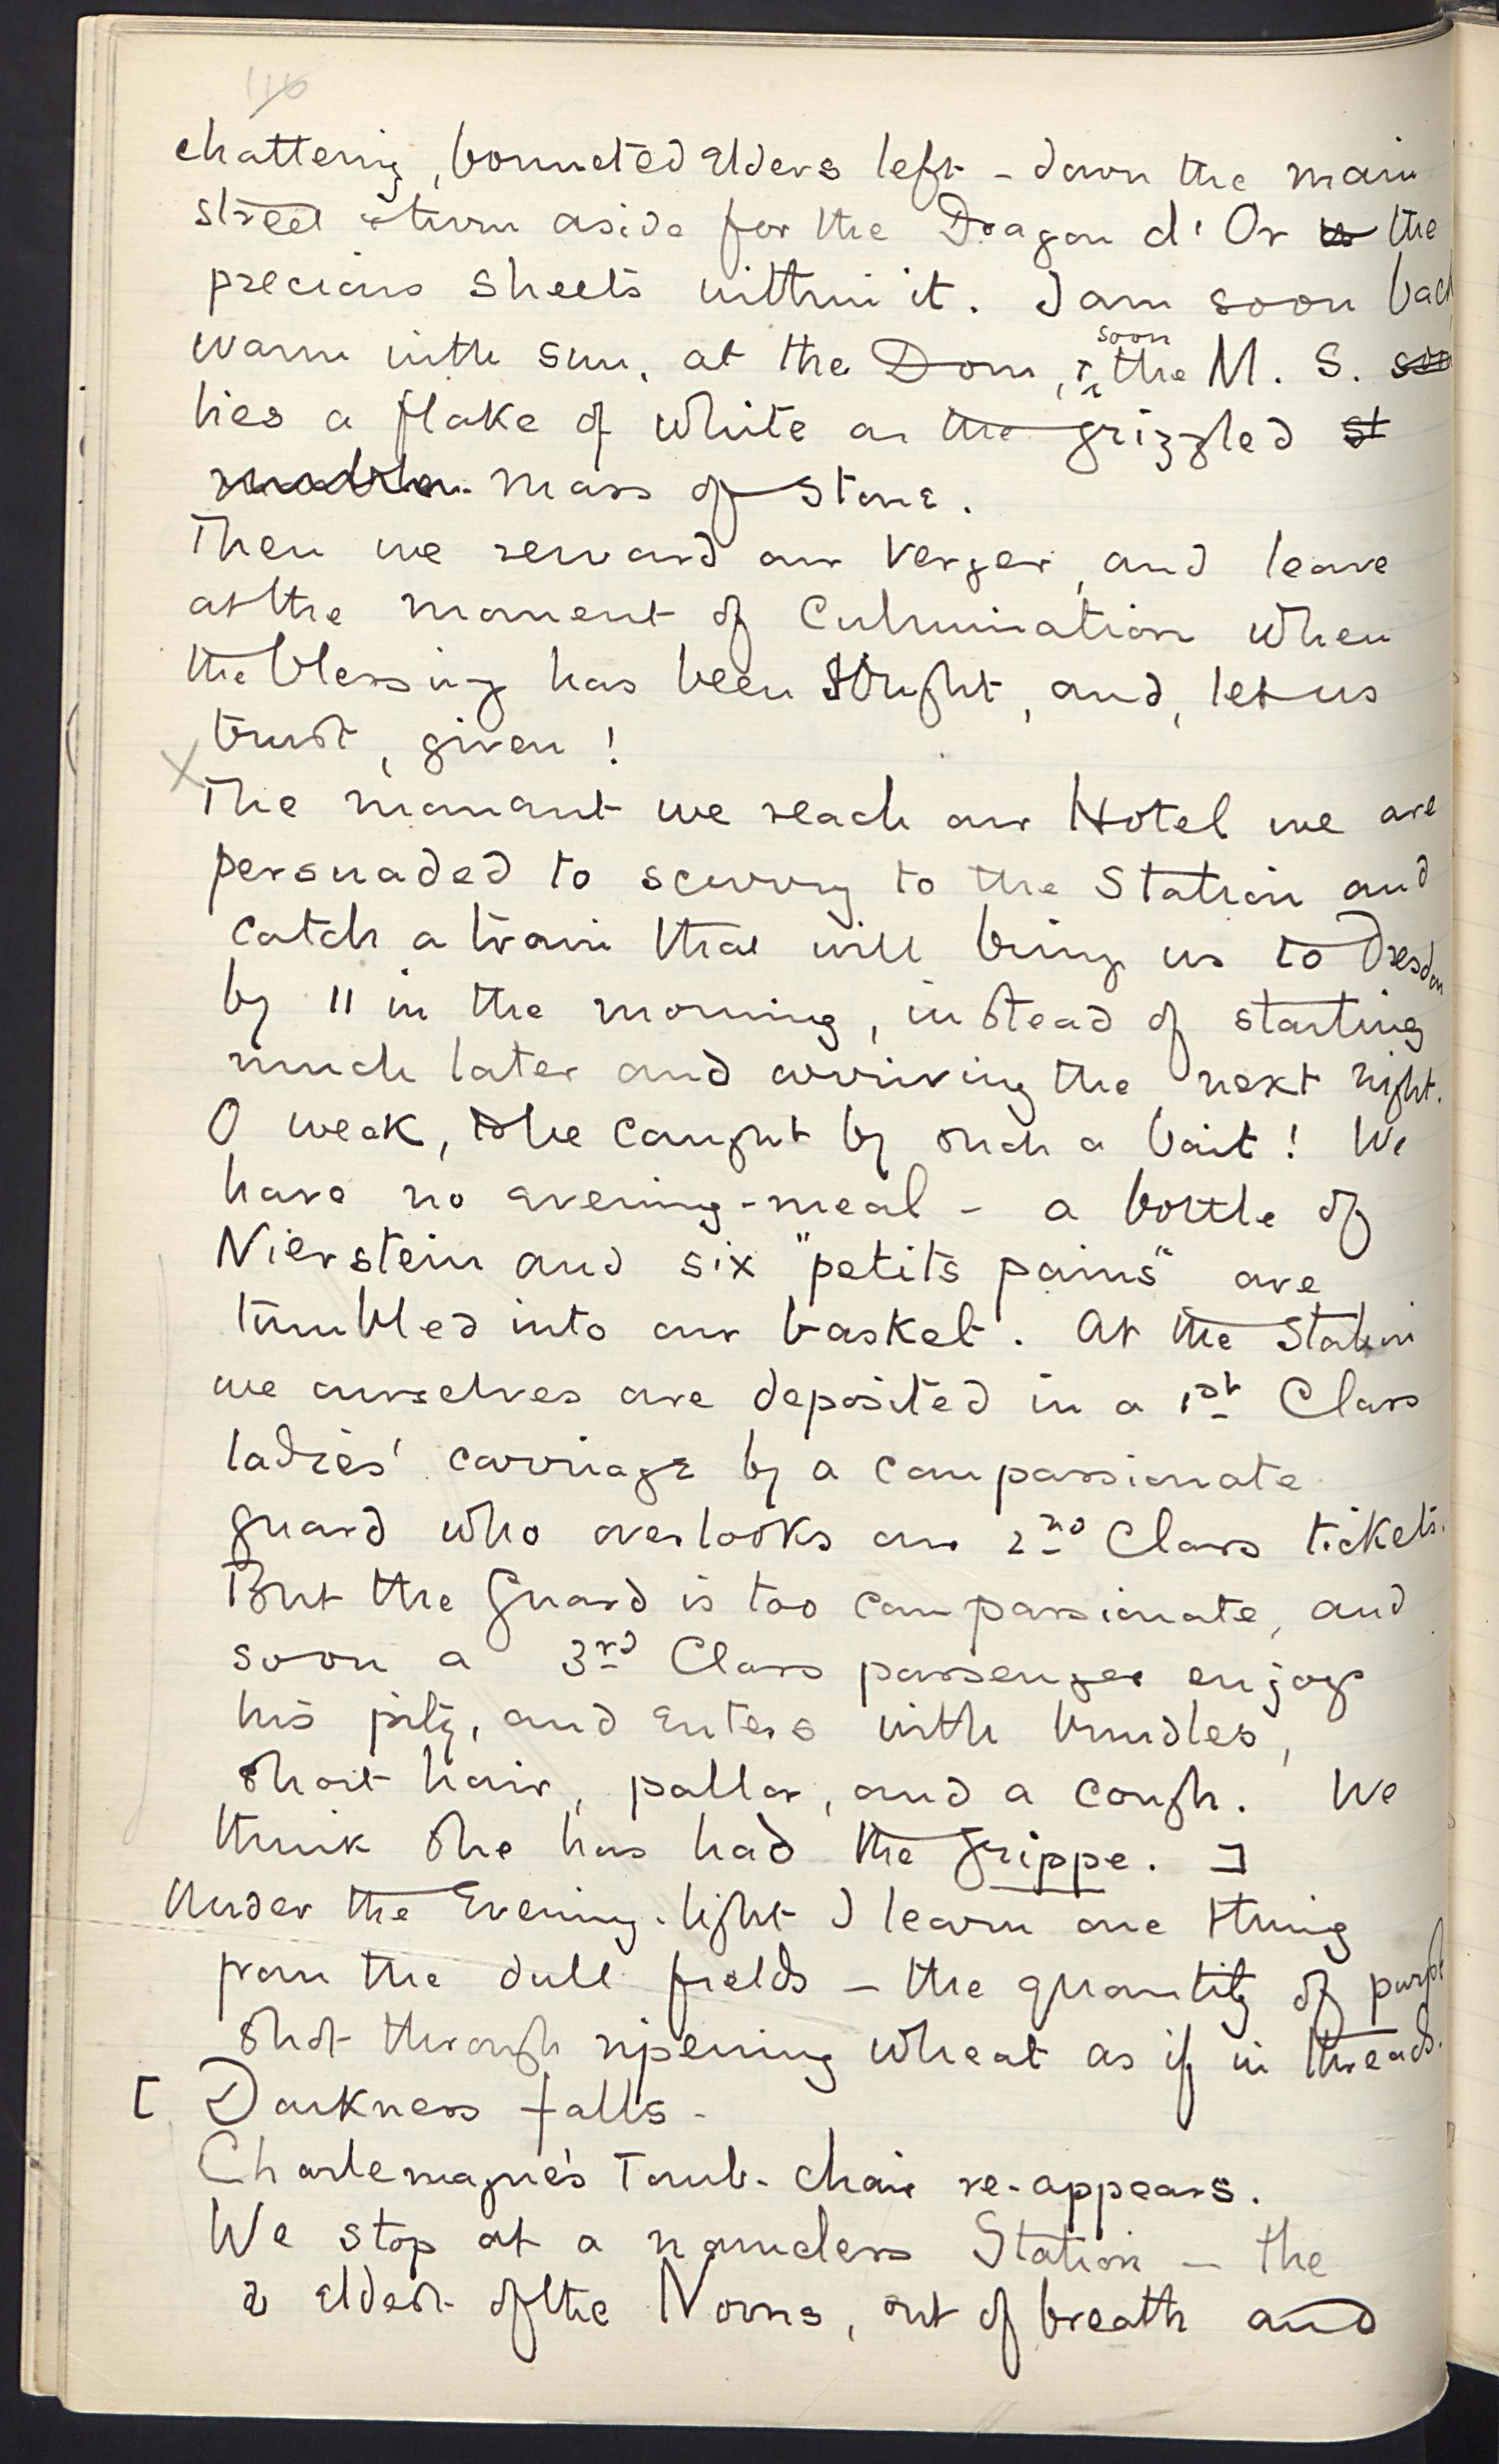 116
chattering, bonneted Elders left – down the main
street & turn aside for the Dragon d'Or & the
precious sheets within it. I am soon back
warm with sun, at the Dom, & soon the M. S.
lies a flake of white on the grizzled st
mass of stone.
Then we reward our Verger, and leave
at the moment of Culmination when
the blessing has been sought, and, let us
trust, given!
X
The moment we reach our Hotel we are
persuaded to scurry to the Station and
catch a train that will bring us to Dresden
by 11 in the morning, instead of starting
much later and arriving the next night.
O weak, to be caught by such a bait! We
have no evening-meal – a bottle of
Nierstein and six "petits pains" are
tumbled into our basket. At the Station
we ourselves are deposited in a 1st Class
ladies' carriage by a compassionate
guard who overlooks our 2nd Class tickets.
But the Guard is too compassionate, and
soon a 3rd Class passenger enjoys
his pity, and enters with bundles,
short hair, pallor, and a cough. We
think she has had the grippe. ]
Under the Evening-light I learn one thing
from the dull fields – the quantity of purple
shot through ripening wheat as if in threads.
[ Darkness falls –
Charlemagne's Tomb-chair re-appears.
We stop at a nameless Station – the
eldest of the Norns, out of breath and